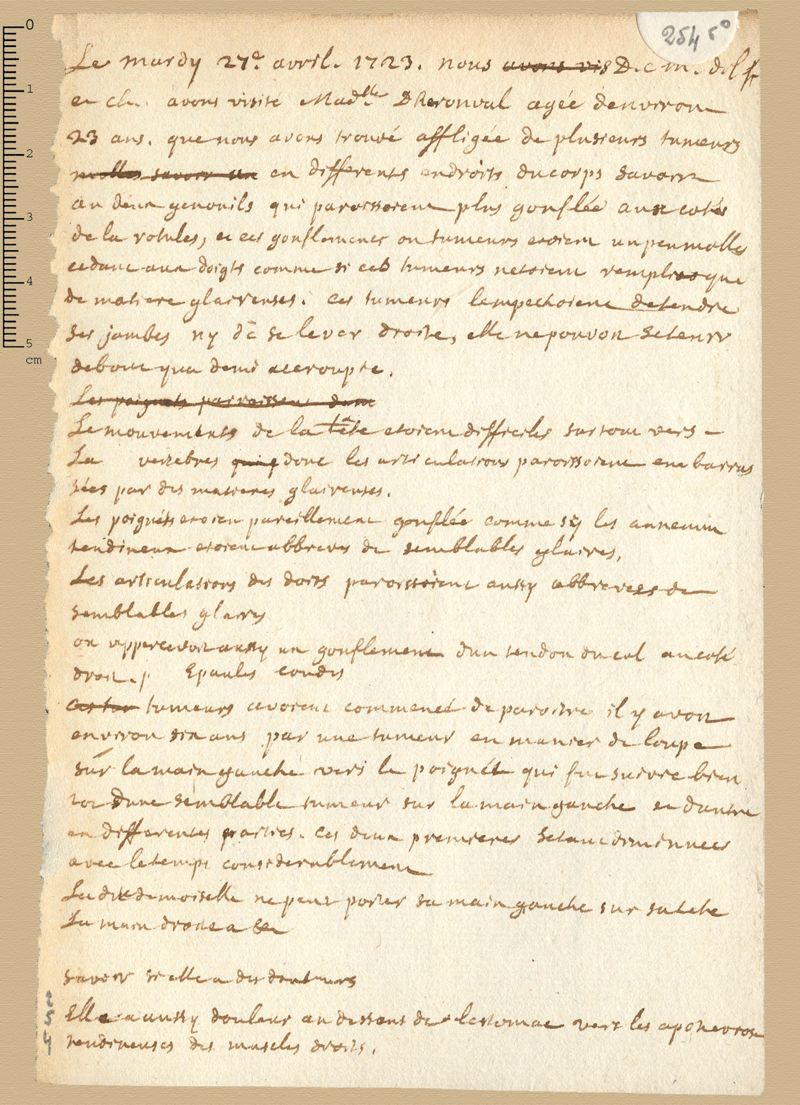 254 c°
Le mardy 27e avril. 1723. nous avons vis D. c m. d l f
et ch. avons visité Madlle Dheronval agée denviron
23 ans. que nous avons trouvé affligée de plusieurs tumeurs
molles savoir un en differents endroits du corps savoir
au deux genouils qui paroissoient plus gonflée aux cotés
de la rotules, et ces gonflements ou tumeurs etoient un peu molles
cedant aux doigts comme si ces tumeurs netoient remplis que
de matiere glaireuses. Ces tumeurs lempechoient detendre
ses jambes ny de se lever droite, elle ne pouvoit se tenir
debout qua demi accroupie.
Les poignets paroissent dem
Le mouvements de la tête etoient difficiles surtout vers
La vertebres donc les articulations paroissoient embaras
sées par des matieres glaireuses.
Les poignets etoien pareillement gonflée comme sy les anneaux
tendineux etoient abbreves de semblables glaires,
Les articulations des doits paroissoient aussy abbrevees de
semblables glaires
on appercevoit aussy un gonflement dun tendon du col au coté
droit. Epaules coudes
tumeurs avoient commencé de paroitre il y avoit
environ six ans par une tumeur en manier de loupe
sur la main gauche vers le poignet qui fut suivie bien
tot dune semblable tumeur sur la main gauche et dautre
en differentes parties. Ces deux premieres setant diminuees
avec le temps considerablement
La dite demoiselle ne peut porter sa main gauche sur sa tete
La main droite a
savoir si elle a des douleurs
Elle a aussy douleur au dessous de lestomac vers les aponevrose
tendineuses des muscles droits.
0
1
2
3
4
5
cm